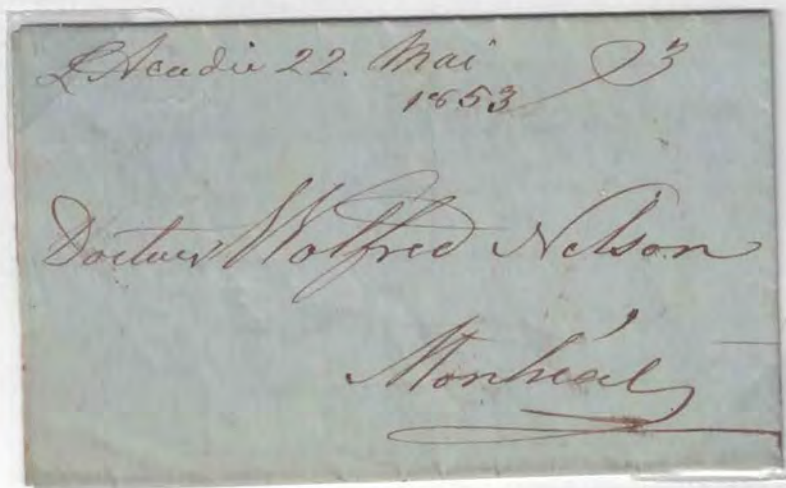 L'Acadie 22. Mai 3
1853
Docteur Wolfred Nelson
Montréal